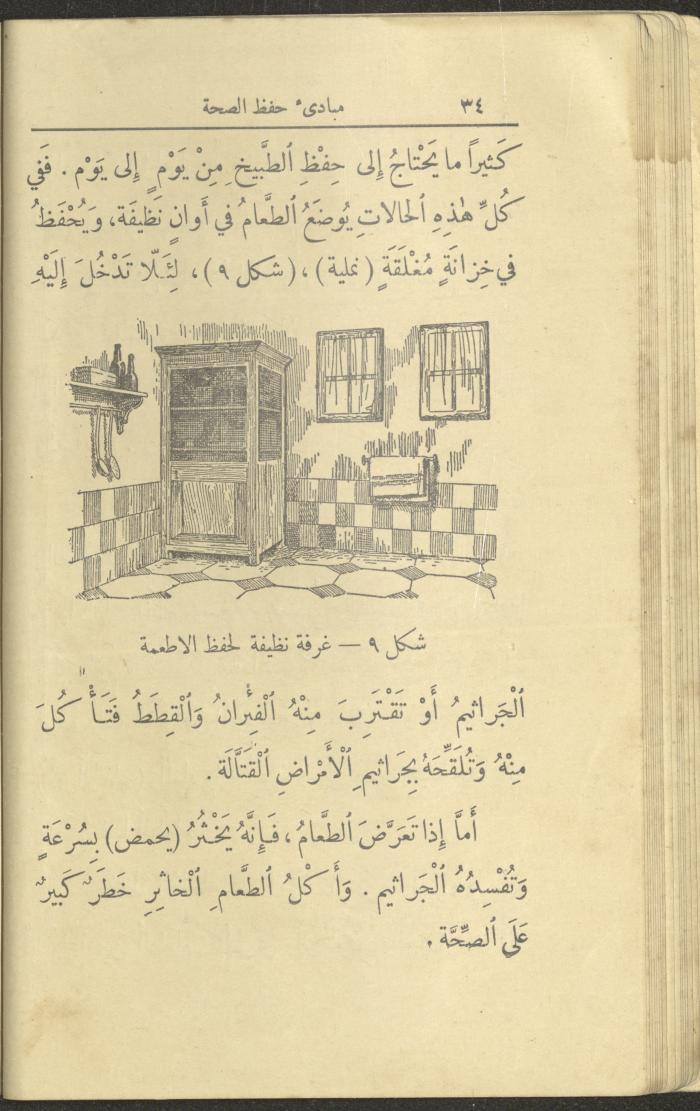 ٣٤ مبادىء حفظ الصحة
كَثيراً ما يَحْتاجُ إِلى حِفْظِ ٱلطَّبيخِ مِنْ يَوْمٍ إِلى يَوْم . فَفي
كُلِّ هٰذِهِ ٱلحالاتِ يُوضَعُ ٱلطَّعامُ في أَوانٍ نَظيفَة، وَيُحْفَظُ
في خِزانَةٍ مُغْلَقَةٍ (نملية)، (شكل ٩)، لِئَلّا تَدْخُلَ إِلَيْهِ
شكل ٩ — غرفة نظيفة لحفظ الاطعمة
ٱلْجَراثيمُ أَوْ تَقْتَرِبَ مِنْهُ ٱلْفِئْرانُ وَٱلْقِطَطُ فَتَأْكُلَ
مِنْهُ وَتُلَقِّحَهُ بِجَراثيمِ ٱلْأَمْراضِ ٱلْقَتَّالَة .
أَمَّا إِذا تَعَرَّضَ ٱلطَّعامُ، فَإِنَّهُ يَخْثُرُ (يحمض) بِسُرْعَةٍ
وَتُفْسِدُهُ ٱلْجَراثيم . وَأَكْلُ ٱلطَّعامِ ٱلْخاثِرِ خَطَرٌ كَبيرٌ
عَلَى ٱلصِّحَّة .